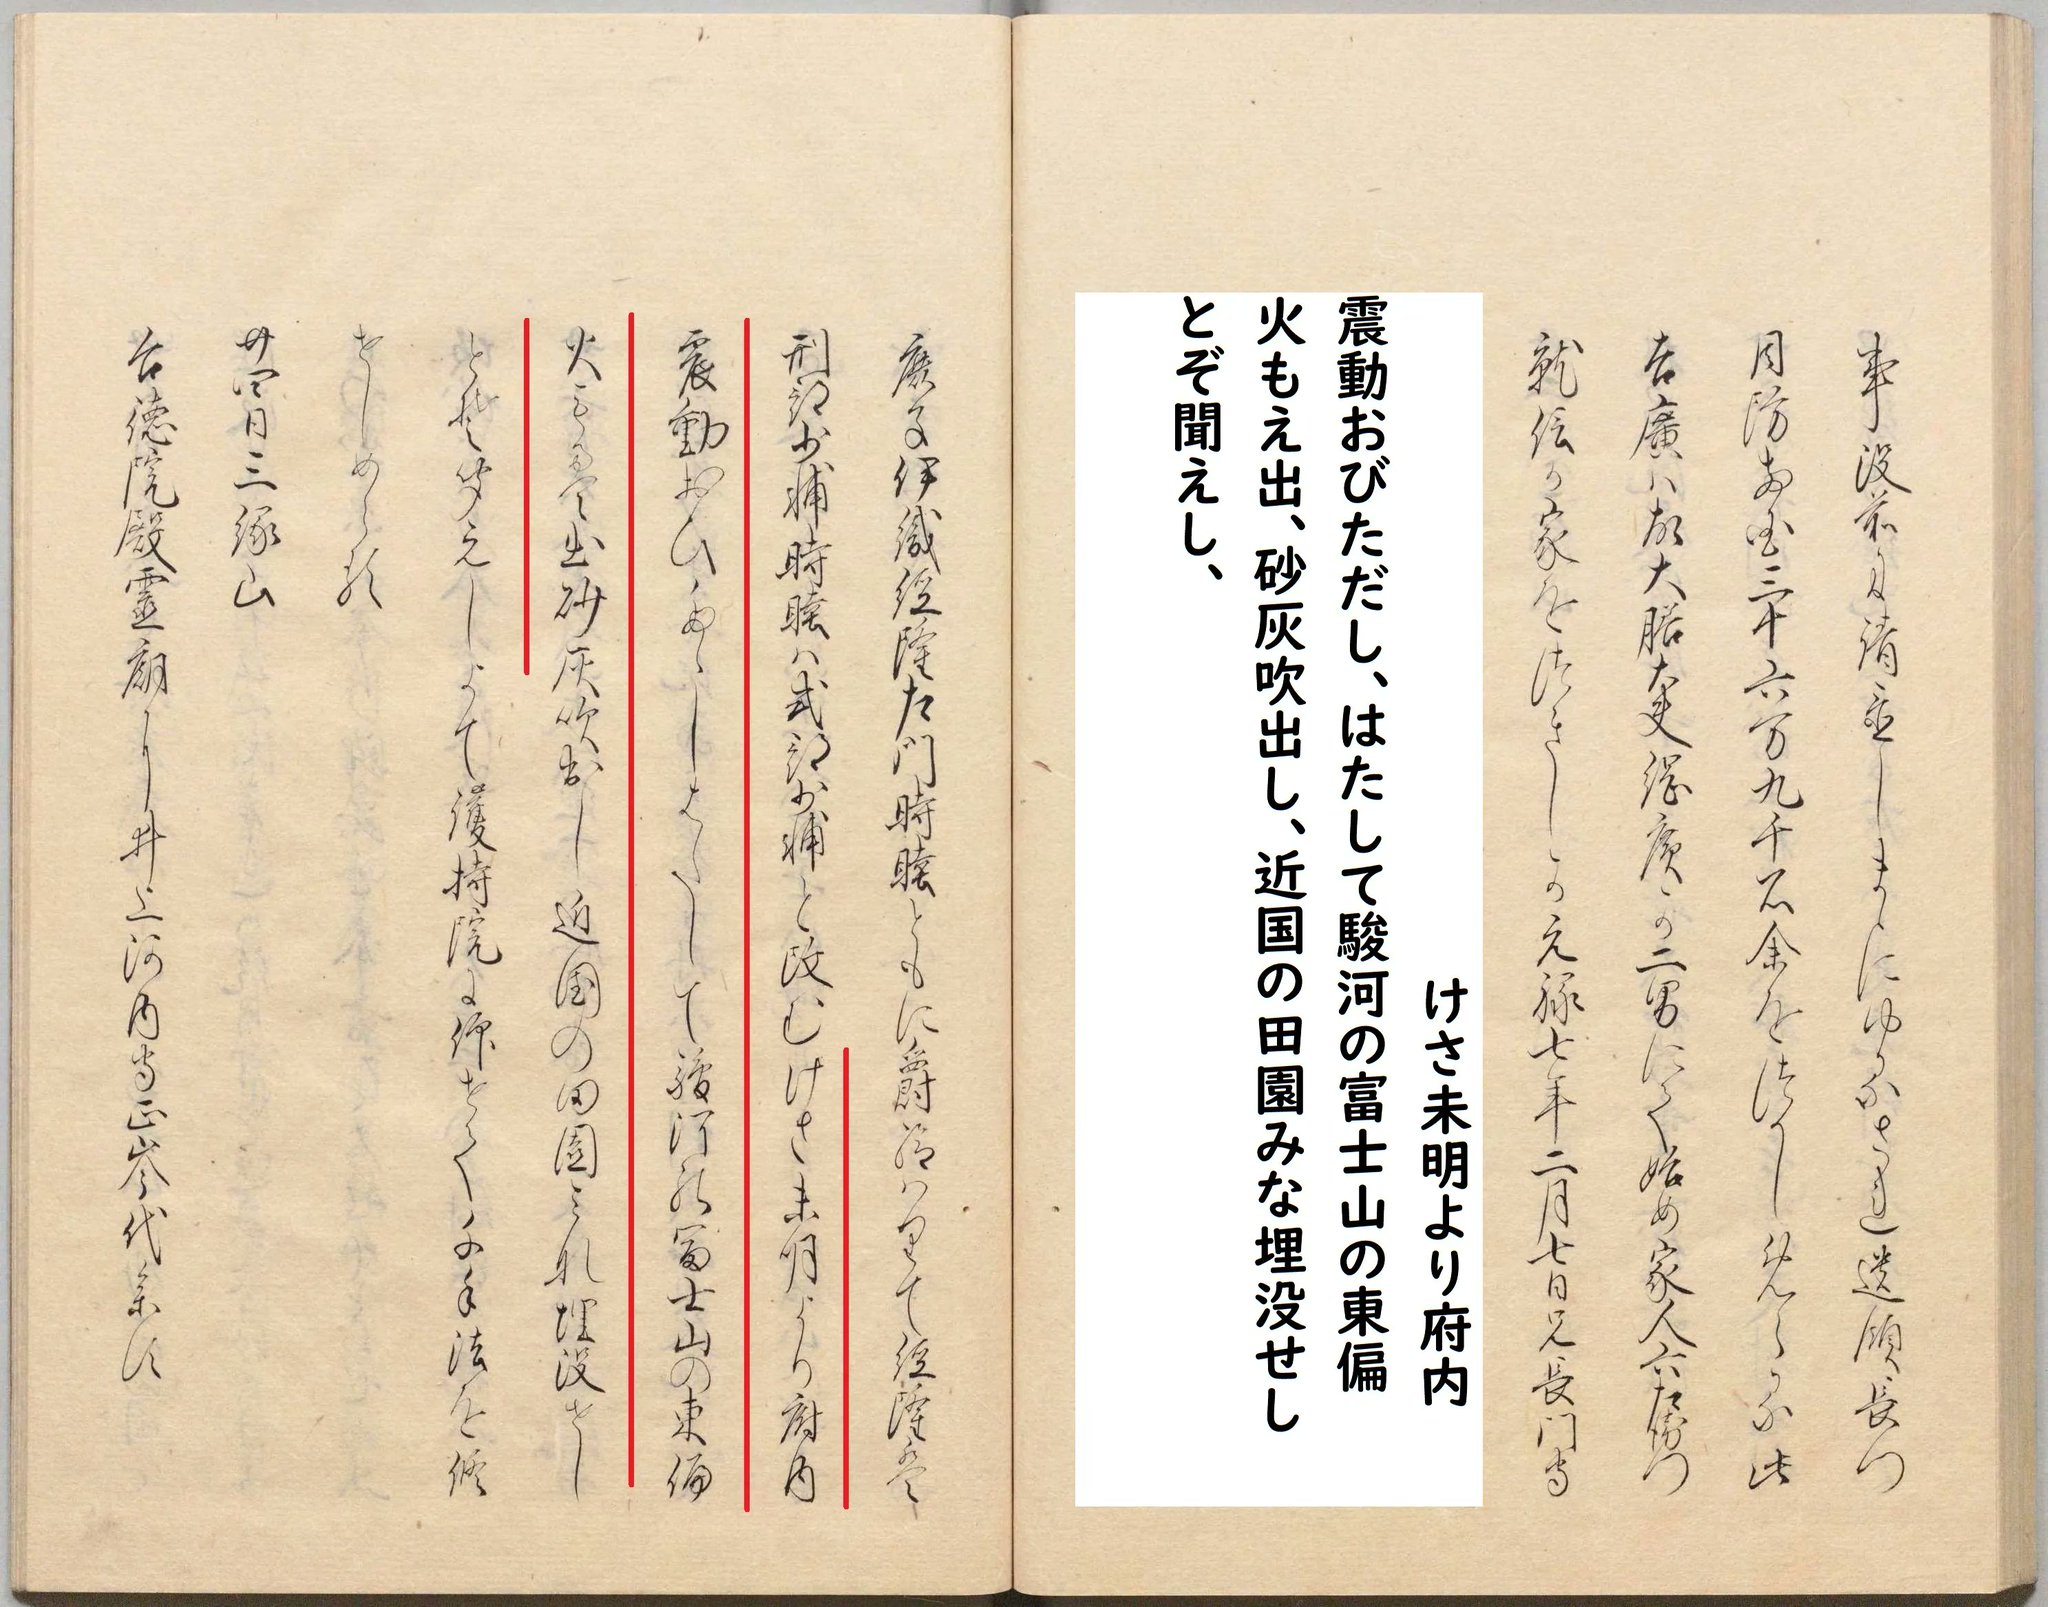 事没前に請置しまゝにゆるされ遺領長門
周防両国三十六万九千石余を津かし
吉廣ハ故大膳大夫綱廣か二男にて始め家人六左衛門
就信か家をつきしか元禄七年二月七日兄長門守
けさ未明より府内
震動おびただし、はたして駿河の富士山の東偏
火もえ出、砂灰吹出し、近国の田園みな埋没せし
とぞ聞えし、
伊織経隆左門時睦ともに爵給ハりて経隆
刑部少輔時睦ハ式部少輔と改むけさ未明より府内
震動おひたゝしはたして駿河の富士山の東偏
火もえ出砂灰吹出し近国の田園みな埋没せし
とそ聞えしよて護持院に仰せて千手法を修
せしめらる
廿四日三縁山
台徳院殿霊廟に井上河内守正岑代参す